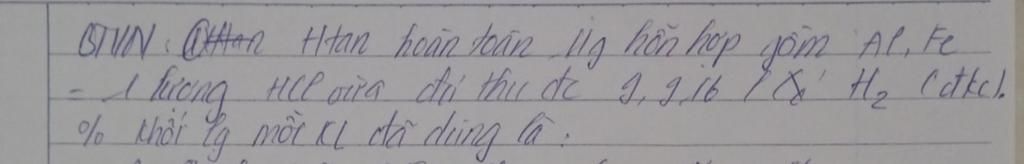 BTVN: Htan hoàn toàn 11g hỗn hợp gồm Al, Fe
= 1 lượng HCl vừa đủ thu đc 9,916 l H2 (đkc).
% khối lg mỗi KL đã dùng là: